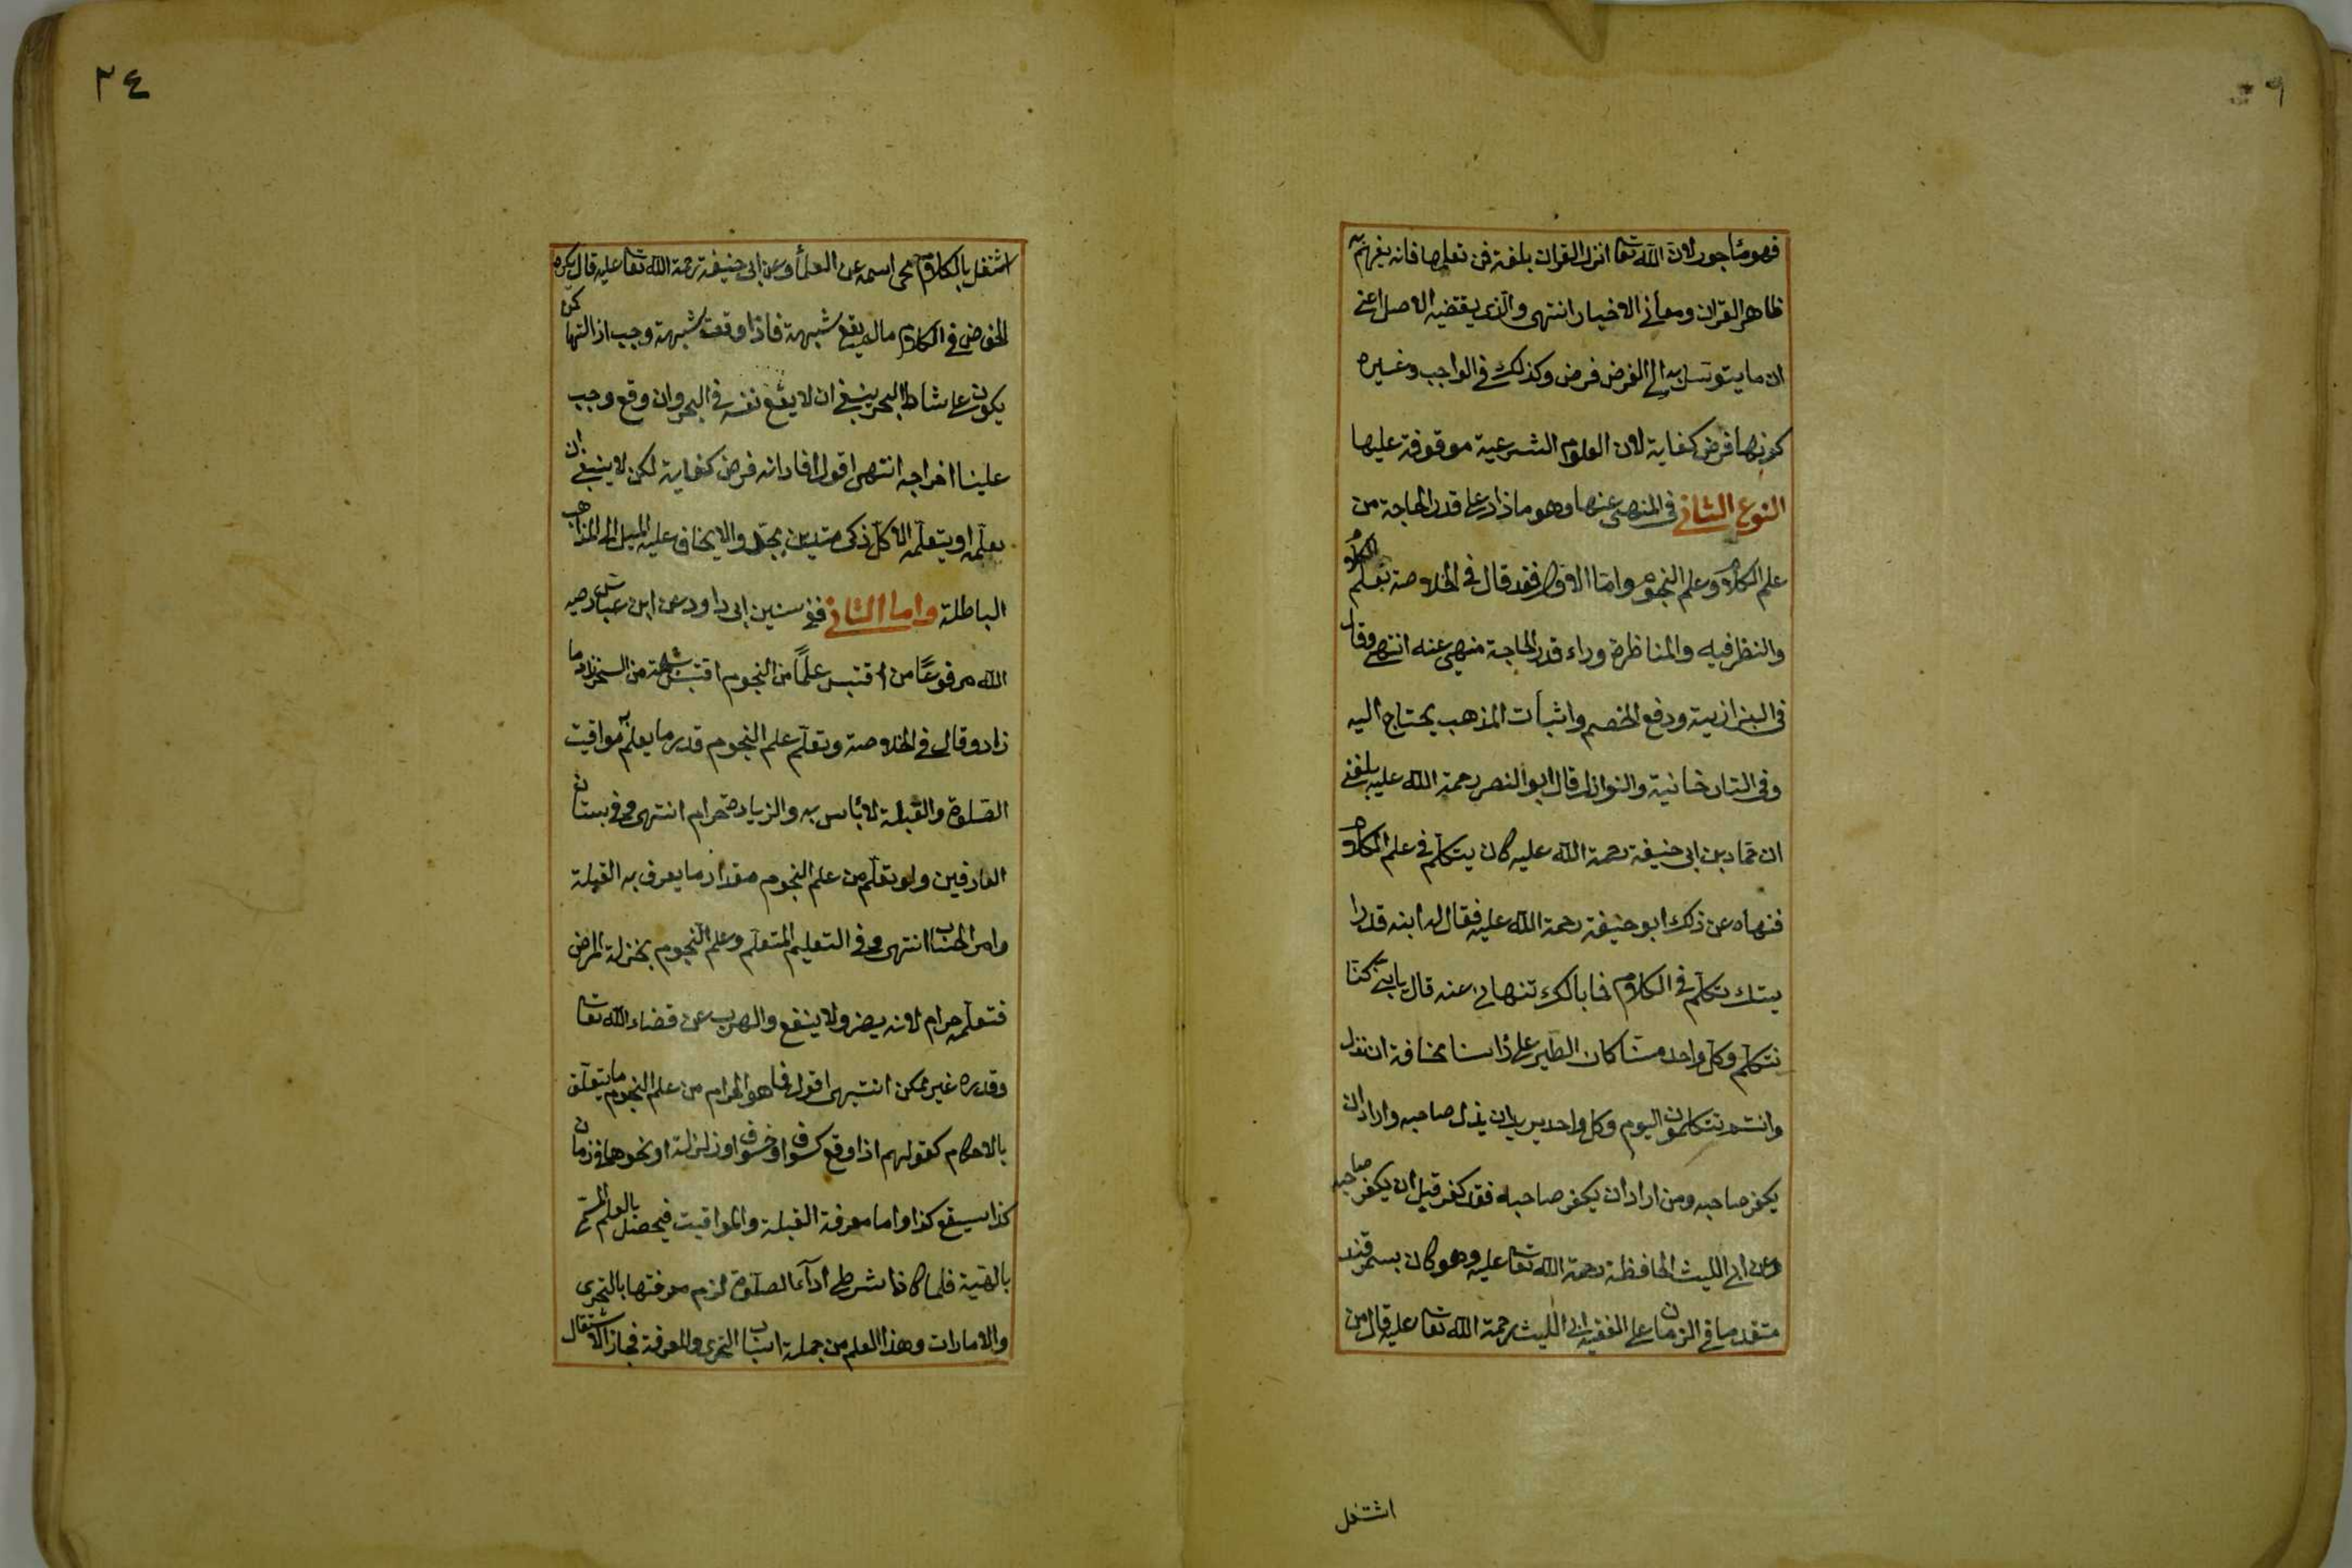 فهو مأجور لان الله تعا انزل القران بلغة فمن تعلمها فانه يفهم به
ظاهر القران ومعاني الاخبار انتهى والذي يقتضيه الاصل اعني
ان ما يتوسل به الى الفرض فرض وكذلك في الواجب وغيره
كونها فرض كفاية لان العلوم الشرعية موقوفة عليها
النوع الثاني في المنهي عنها وهو ما زاد على قدر الحاجة من
علم الكلام وعلم النجوم واما الاول فقد قال في الخلاصة تعلم الكلام
والنظر فيه والمناظرة وراء قدر الحاجة منهي عنه انتهى وقال
في البزازية ودفع الخصم واثبات المذهب يحتاج اليه
وفي التتارخانية والنوازل قال ابو النصر رحمة الله عليه بلغني
ان حماد بن ابي حنيفة رحمة الله عليه كان يتكلم في علم الكلام
فنهاه عن ذلك ابو حنيفة رحمة الله عليه فقال له ابنه قد را
يتك تتكلم في الكلام فما بالك تنهاني عنه قال يا بني كنا
نتكلم وكل واحد منا كان الطير على رأسنا مخافة ان نزل
وانتم تتكلمون اليوم وكل واحد يريد ان يزل صاحبه واراد ان
يكفر صاحبه ومن اراد ان يكفر صاحبه فقد كفر قبل ان يكفر صاحبه
وعن ابي الليث الحافظ رحمة الله تعا عليه وهو كان بسمرقند
متقدما في الزمان على الفقيه ابي الليث رحمة الله تعا عليه قال من
اشتغل
٣٤
اشتغل بالكلام محي اسمه عن العلماء وعن ابي حنيفة رحمة الله تعا عليه قال يكره
الخوض في الكلام مالم يقع شبهة فاذا وقعت شبهة وجب ازالتها كمن
يكون على شاطئ البحر ينبغي ان لا يقع نفسه في البحر وان وقع وجب
علينا اخراجه انتهى اقول افاد انه فرض كفاية لكن لا ينبغي ان
يعلمه او يتعلمه الا كل ذكي متدين مجد والا يخاف عليه الميل الى المذاهب
الباطلة واما الثاني ففي سنن ابي داود عن ابن عباس رضي
الله مرفوعا من اقتبس علما من النجوم اقتبس شعبة من السحر زاد ما
زاد وقال في الخلاصة وتعلم علم النجوم قدر ما يعلم به مواقيت
الصلوة والقبلة لا بأس به والزيادة حرام انتهى وفي بستان
العارفين ولو تعلم من علم النجوم مقدار ما يعرف به القبلة
وامر الحساب انتهى وفي التعليم المتعلم وعلم النجوم بمنزلة المرض
فتعلمه حرام لانه يضر ولا ينفع والهرب عن قضاء الله تعا
وقدره غير ممكن انتهى اقول فما هو الحرام من علم النجوم ما يتعلق
بالاحكام كقولهم اذا وقع كسوف او خسوف او زلزلة او نحوها في زمان
كذا سيقع كذا واما معرفة القبلة والمواقيت فيحصل بالعلم المسمى
بالهيئة فلما كانا شرطي اداء الصلوة لزم معرفتها بالتحري
والامارات وهذا العلم من جملة اسباب التحري والمعرفة فجاز الاشتغال